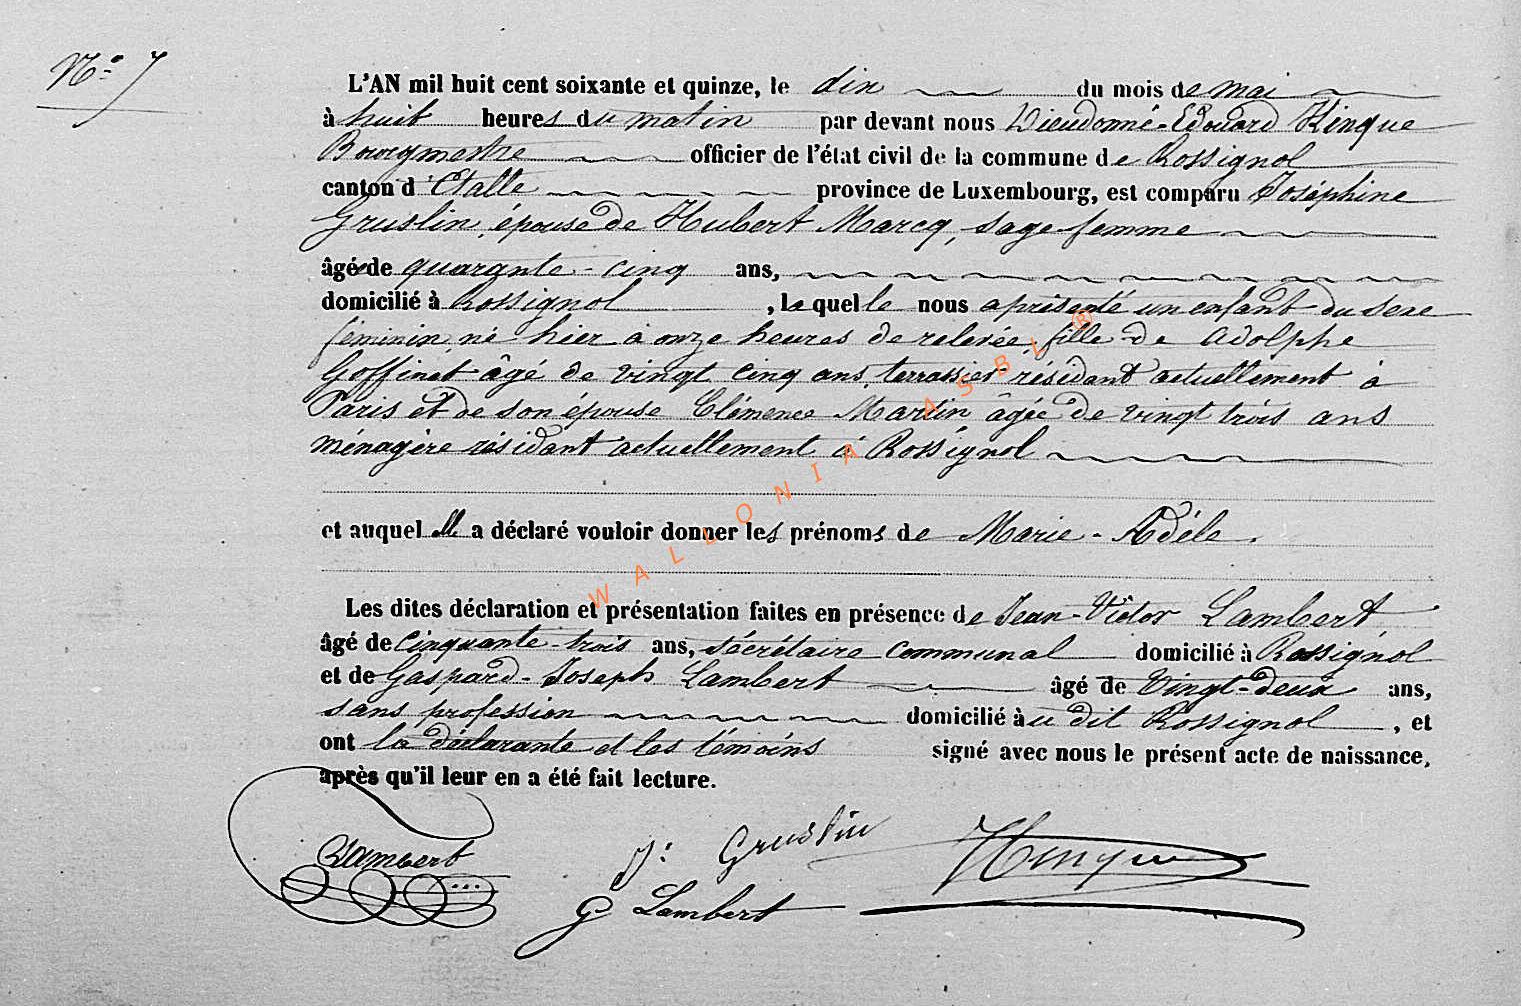 N.º 7
L'AN mil huit cent soixante et quinze, le dix du mois de mai
à huit heures du matin par devant nous Dieudonné-Edouard Hinque
Bourgmestre officier de l'état civil de la commune de Rossignol
canton d'Etalle province de Luxembourg, est comparu Joséphine
Gruslin, épouse de Hubert Marcq, sage femme
âgée de quarante-cinq ans,
domicilié à Rossignol, laquelle nous a présenté un enfant du sexe
féminin, né hier à onze heures de relevée, fille de Adolphe
Goffinet âgé de vingt cinq ans, terrassier résidant actuellement à
Paris et de son épouse Clémence Martin âgée de vingt trois ans
ménagère résidant actuellement à Rossignol
et auquel elle a déclaré vouloir donner les prénoms de Marie-Adèle.
Les dites déclaration et présentation faites en présence de Jean-Victor Lambert
âgé de cinquante-trois ans, sécrétaire communal domicilié à Rossignol
et de Gaspard-Joseph Lambert âgé de vingt-deux ans,
sans profession domicilié au dit Rossignol, et
ont la déclarante et les témoins signé avec nous le présent acte de naissance,
après qu'il leur en a été fait lecture.
Lambert
J: Gruslin
Hinque
G Lambert
WALLONIA ASBL ®